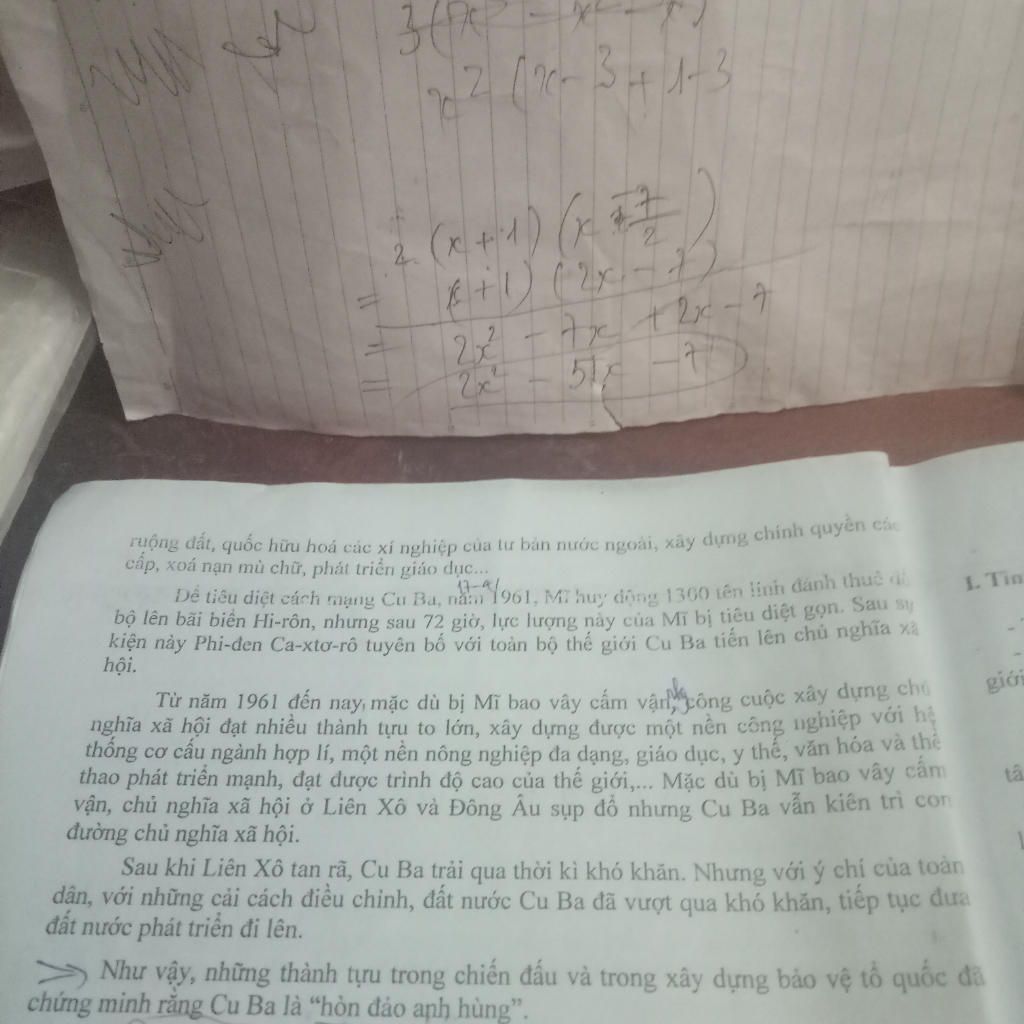 x² (x - 3 + 1 - 3
2 (x + 1) (x - 7/2)
= (x + 1) (2x - 7)
= 2x² - 7x + 2x - 7
= 2x² - 5x - 7
ruộng đất, quốc hữu hoá các xí nghiệp của tư bản nước ngoài, xây dựng chính quyền các
cấp, xoá nạn mù chữ, phát triển giáo dục...
17-4/
Để tiêu diệt cách mạng Cu Ba, năm 1961, Mĩ huy động 1300 tên lính đánh thuê đổ
bộ lên bãi biển Hi-rôn, nhưng sau 72 giờ, lực lượng này của Mĩ bị tiêu diệt gọn. Sau sự
kiện này Phi-đen Ca-xtơ-rô tuyên bố với toàn bộ thế giới Cu Ba tiến lên chủ nghĩa xã
hội.
Từ năm 1961 đến nay, mặc dù bị Mĩ bao vây cấm vận, công cuộc xây dựng chủ
nghĩa xã hội đạt nhiều thành tựu to lớn, xây dựng được một nền công nghiệp với hệ
thống cơ cấu ngành hợp lí, một nền nông nghiệp đa dạng, giáo dục, y thế, văn hóa và thể
thao phát triển mạnh, đạt được trình độ cao của thế giới,... Mặc dù bị Mĩ bao vây cấm
vận, chủ nghĩa xã hội ở Liên Xô và Đông Âu sụp đổ nhưng Cu Ba vẫn kiên trì con
đường chủ nghĩa xã hội.
Sau khi Liên Xô tan rã, Cu Ba trải qua thời kì khó khăn. Nhưng với ý chí của toàn
dân, với những cải cách điều chỉnh, đất nước Cu Ba đã vượt qua khó khăn, tiếp tục đưa
đất nước phát triển đi lên.
Như vậy, những thành tựu trong chiến đấu và trong xây dựng bảo vệ tổ quốc đã
chứng minh rằng Cu Ba là “hòn đảo anh hùng”.
I. Tìn
giới
tâ